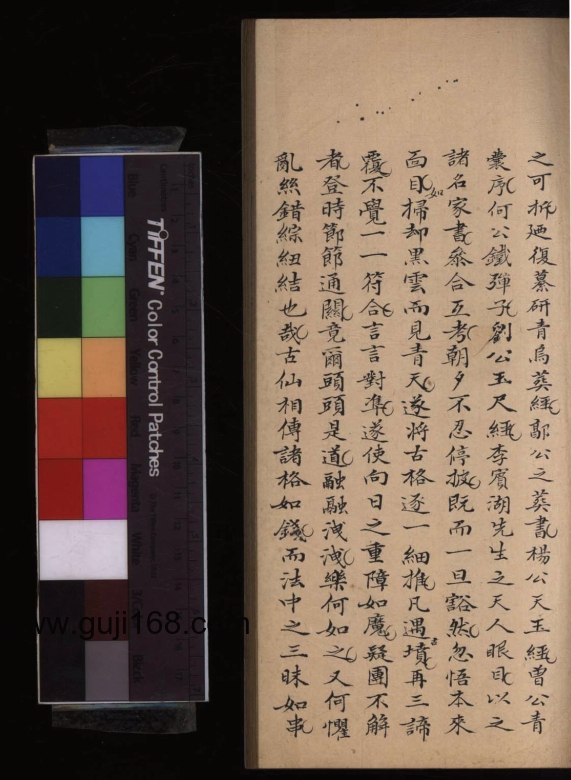 之可拆廼復纂研青烏葵經鄣公之葵書楊公天玉經曾公青
囊序何公鐵彈子劉公玉尺經李賓湖先生之天人眼目以之
諸名家書叅合互考朝夕不忍停披既而一旦豁然忽悟本來
面目如掃却黑雲而見青天遂將古格逐一細推凡遇古墳再三諦
覆不覺一一符合言言對準遂使向日之重障如魔疑團不解
者登時節節通關竟爾頭頭是道融融洩洩樂何如之又何懼
亂絲錯綜紐結也哉古仙相傳諸格如錢而法中之三昧如串
TIFFEN® Color Control Patches
Blue
Cyan
Green
Yellow
Red
Magenta
White
Black
www.guji168.com